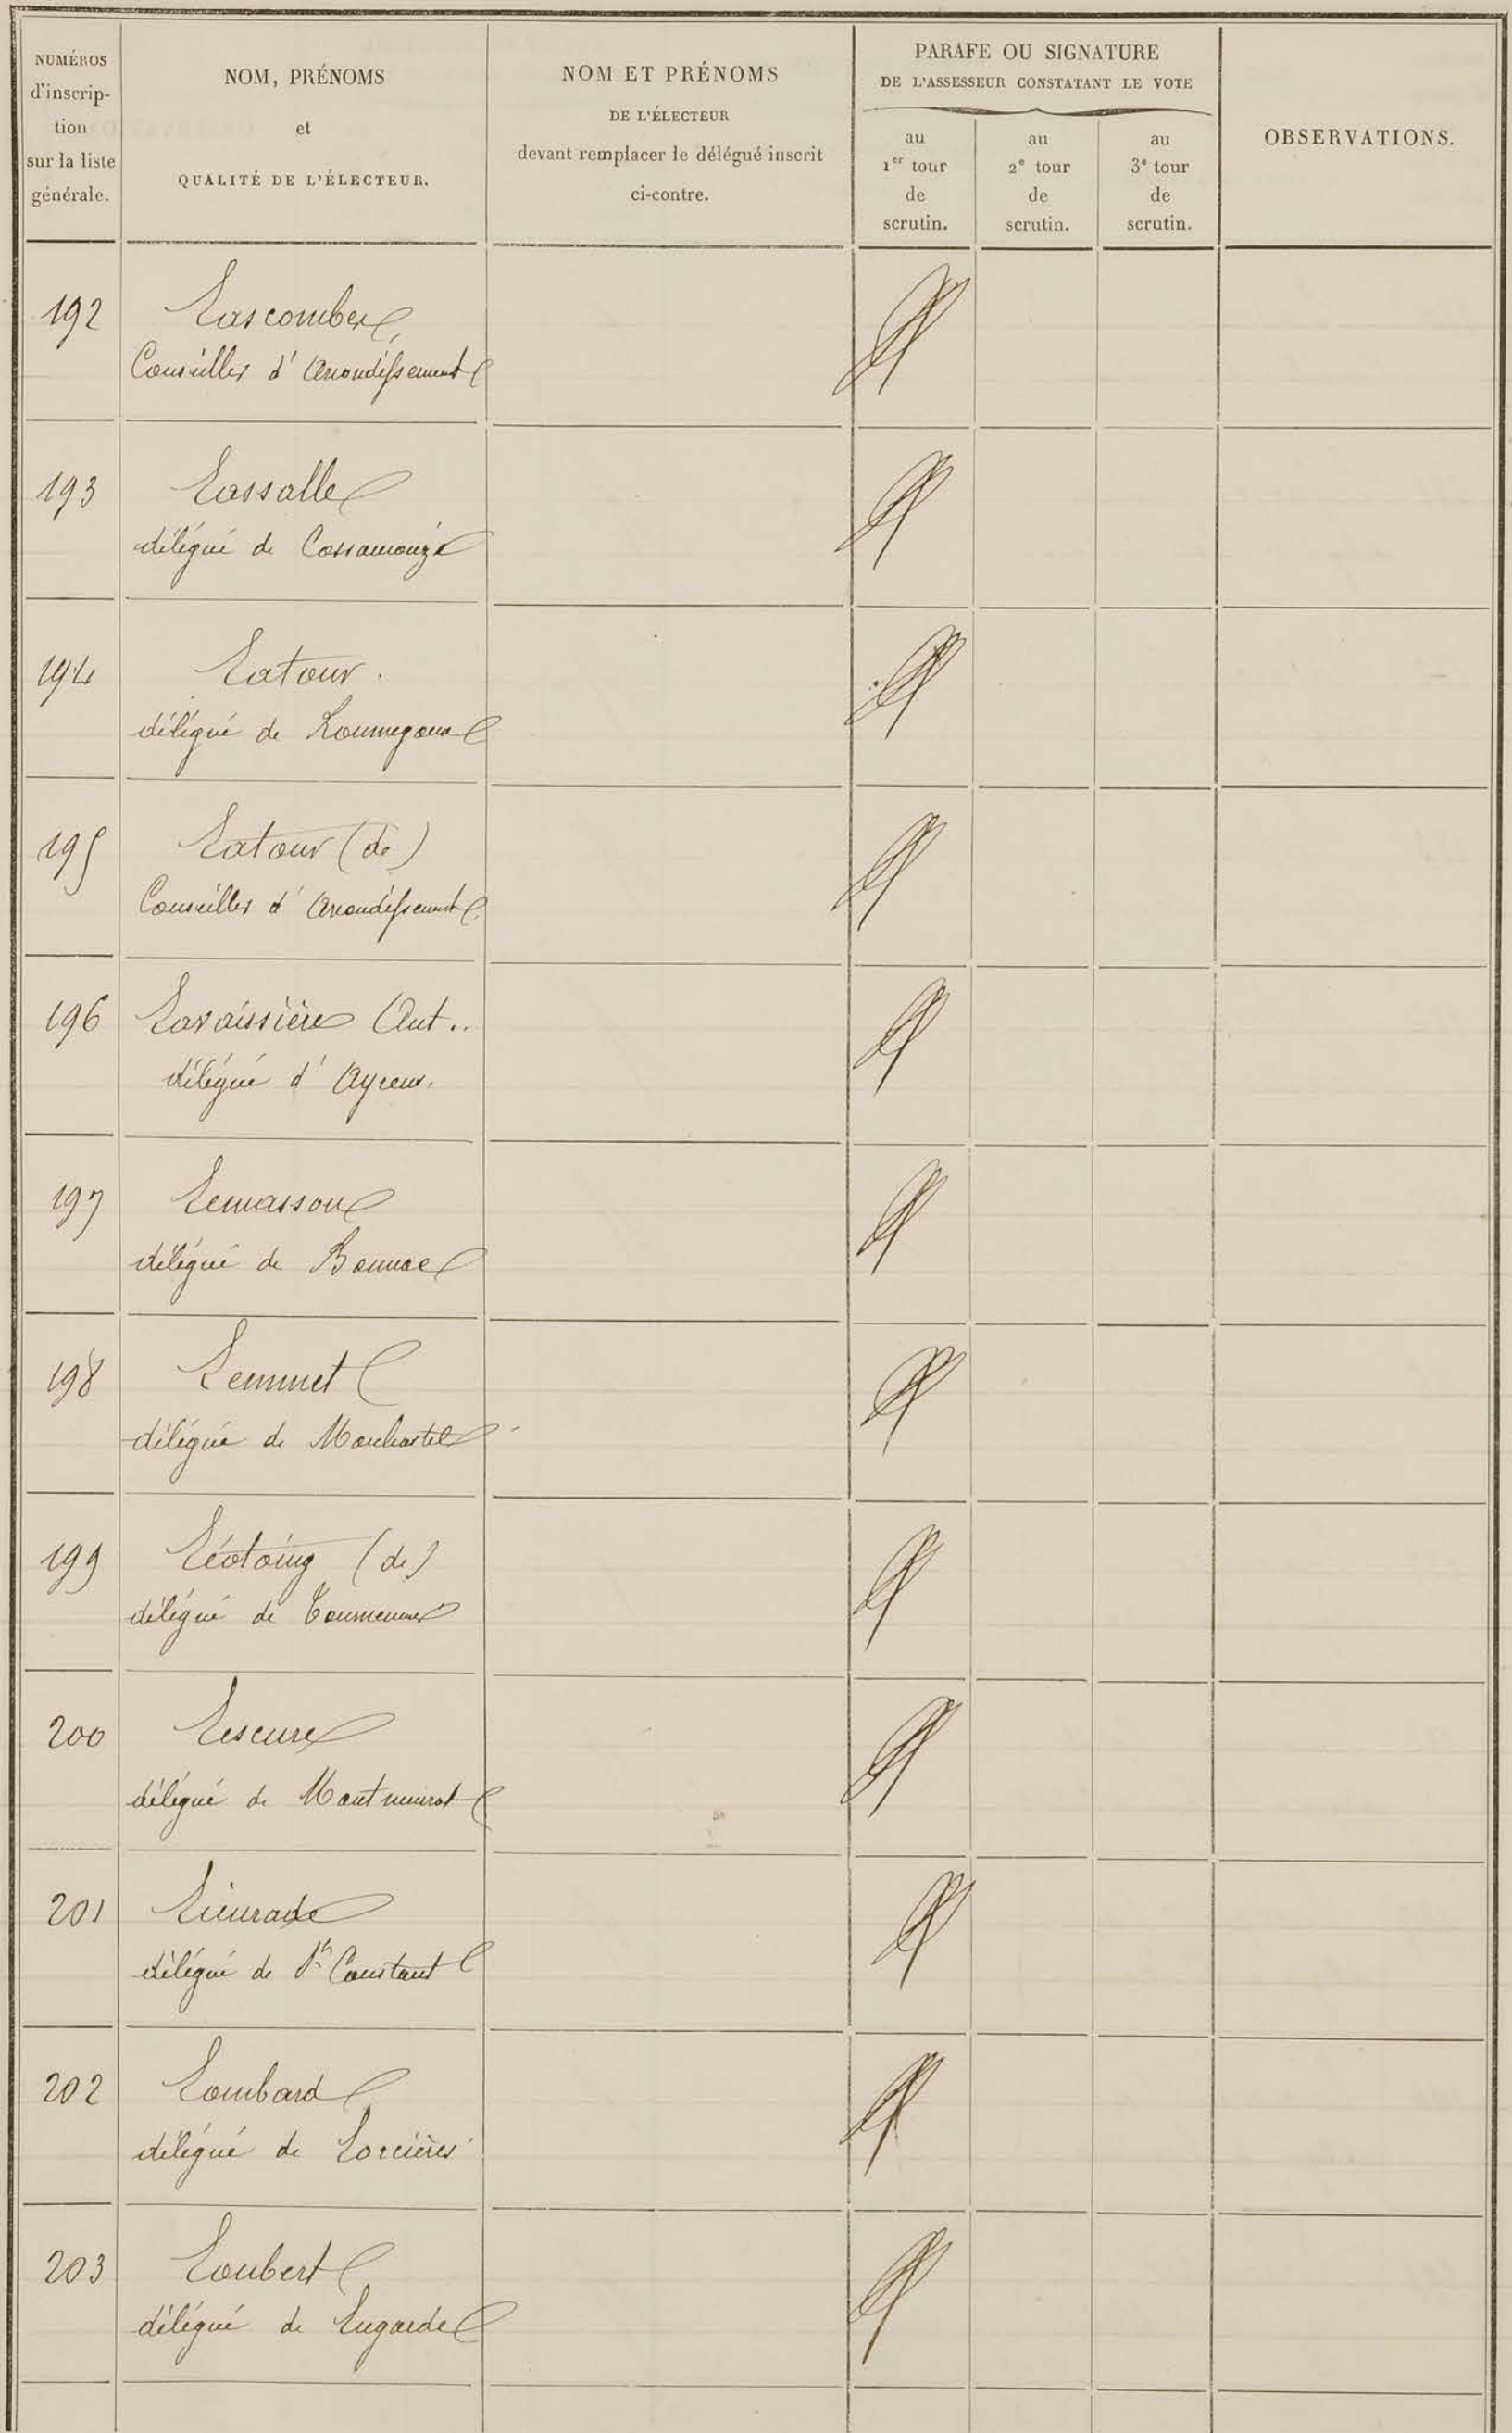 NUMÉROS
d'inscrip-
tion
sur la liste
générale.
NOM, PRÉNOMS
et
QUALITÉ DE L'ÉLECTEUR.
NOM ET PRÉNOMS
DE L'ÉLECTEUR
devant remplacer le délégué inscrit
ci-contre.
PARAFE OU SIGNATURE
DE L'ASSESSEUR CONSTATANT LE VOTE
au
1er tour
de
scrutin.
au
2e tour
de
scrutin.
au
3e tour
de
scrutin.
OBSERVATIONS.
192 Lascombes
Conseiller d'Arrondissement
193 Lassalle
délégué de
194 Latour.
délégué de Roumegoux
195 Latour (de)
Conseiller d'Arrondissement
196 Lavaissière Ant..
délégué d'Ayrens.
197 Lemasson
délégué de Bonnac
198 Lemmet
délégué de Marchastel
199 Léotoing (de)
délégué de Tournemire
200 Lescure
délégué de Montmurat
201 Lieurade
délégué de St Constant
202 Lombard
délégué de Lorcières
203 Loubert
délégué de Lugarde